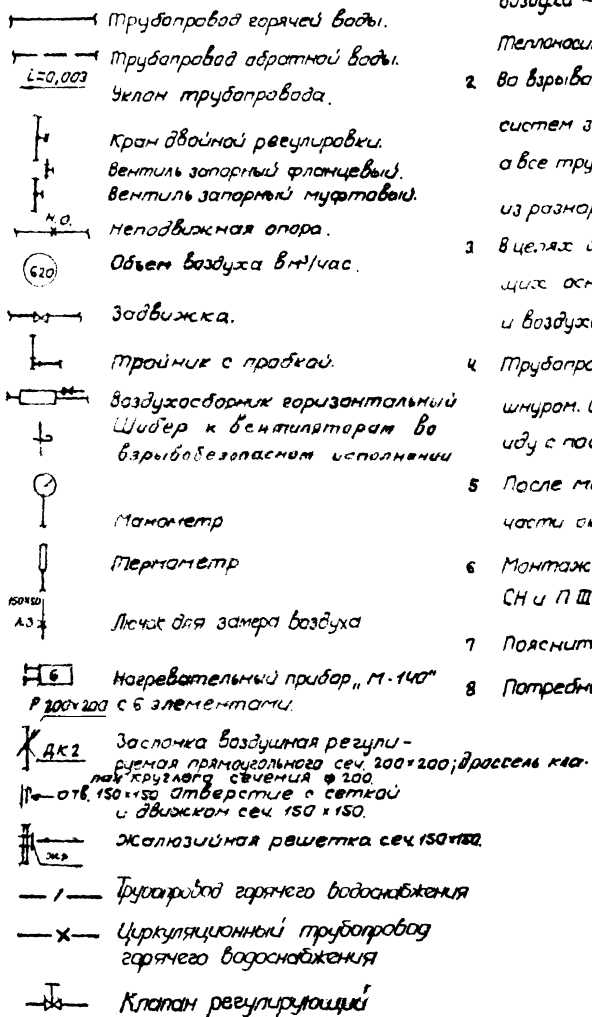 Трубопровод горячей воды.
Трубопровод обратной воды.
i=0,003
Уклон трубопровода.
Кран двойной регулировки.
Вентиль запорный фланцевый.
Вентиль запорный муфтовый.
Н.О.
Неподвижная опора.
620
Объем воздуха в м³/час.
Задвижка.
Тройник с пробкой.
Воздухосборник горизонтальный
Шибер к вентиляторам во
взрывобезопасном исполнении
Манометр
Термометр
150×150
Л.З
Лючок для замера воздуха
6
Нагревательный прибор „М-140"
с 6 элементами.
Р 200×200
ДК2
Заслонка воздушная регули-
руемая прямоугольного сеч. 200×200; дроссель кла-
пан круглого сечения ф 200.
отв. 150×150 Отверстие с сеткой
и движком сеч. 150×150.
жр
Жалюзийная решетка сеч. 150×150.
Трубопровод горячего водоснабжения
Циркуляционный трубопровод
горячего водоснабжения
Клапан регулирующий
воздуха -
Теплоноси
2 Во взрыво
систем з
а все тру
из разнор
3 В целях и
щих осн
и воздухо
4 Трубопро
шнуром.
иду с пос
5 После мо
части ок
6 Монтаж
СН и П III
7 Поясните
8 Потребн